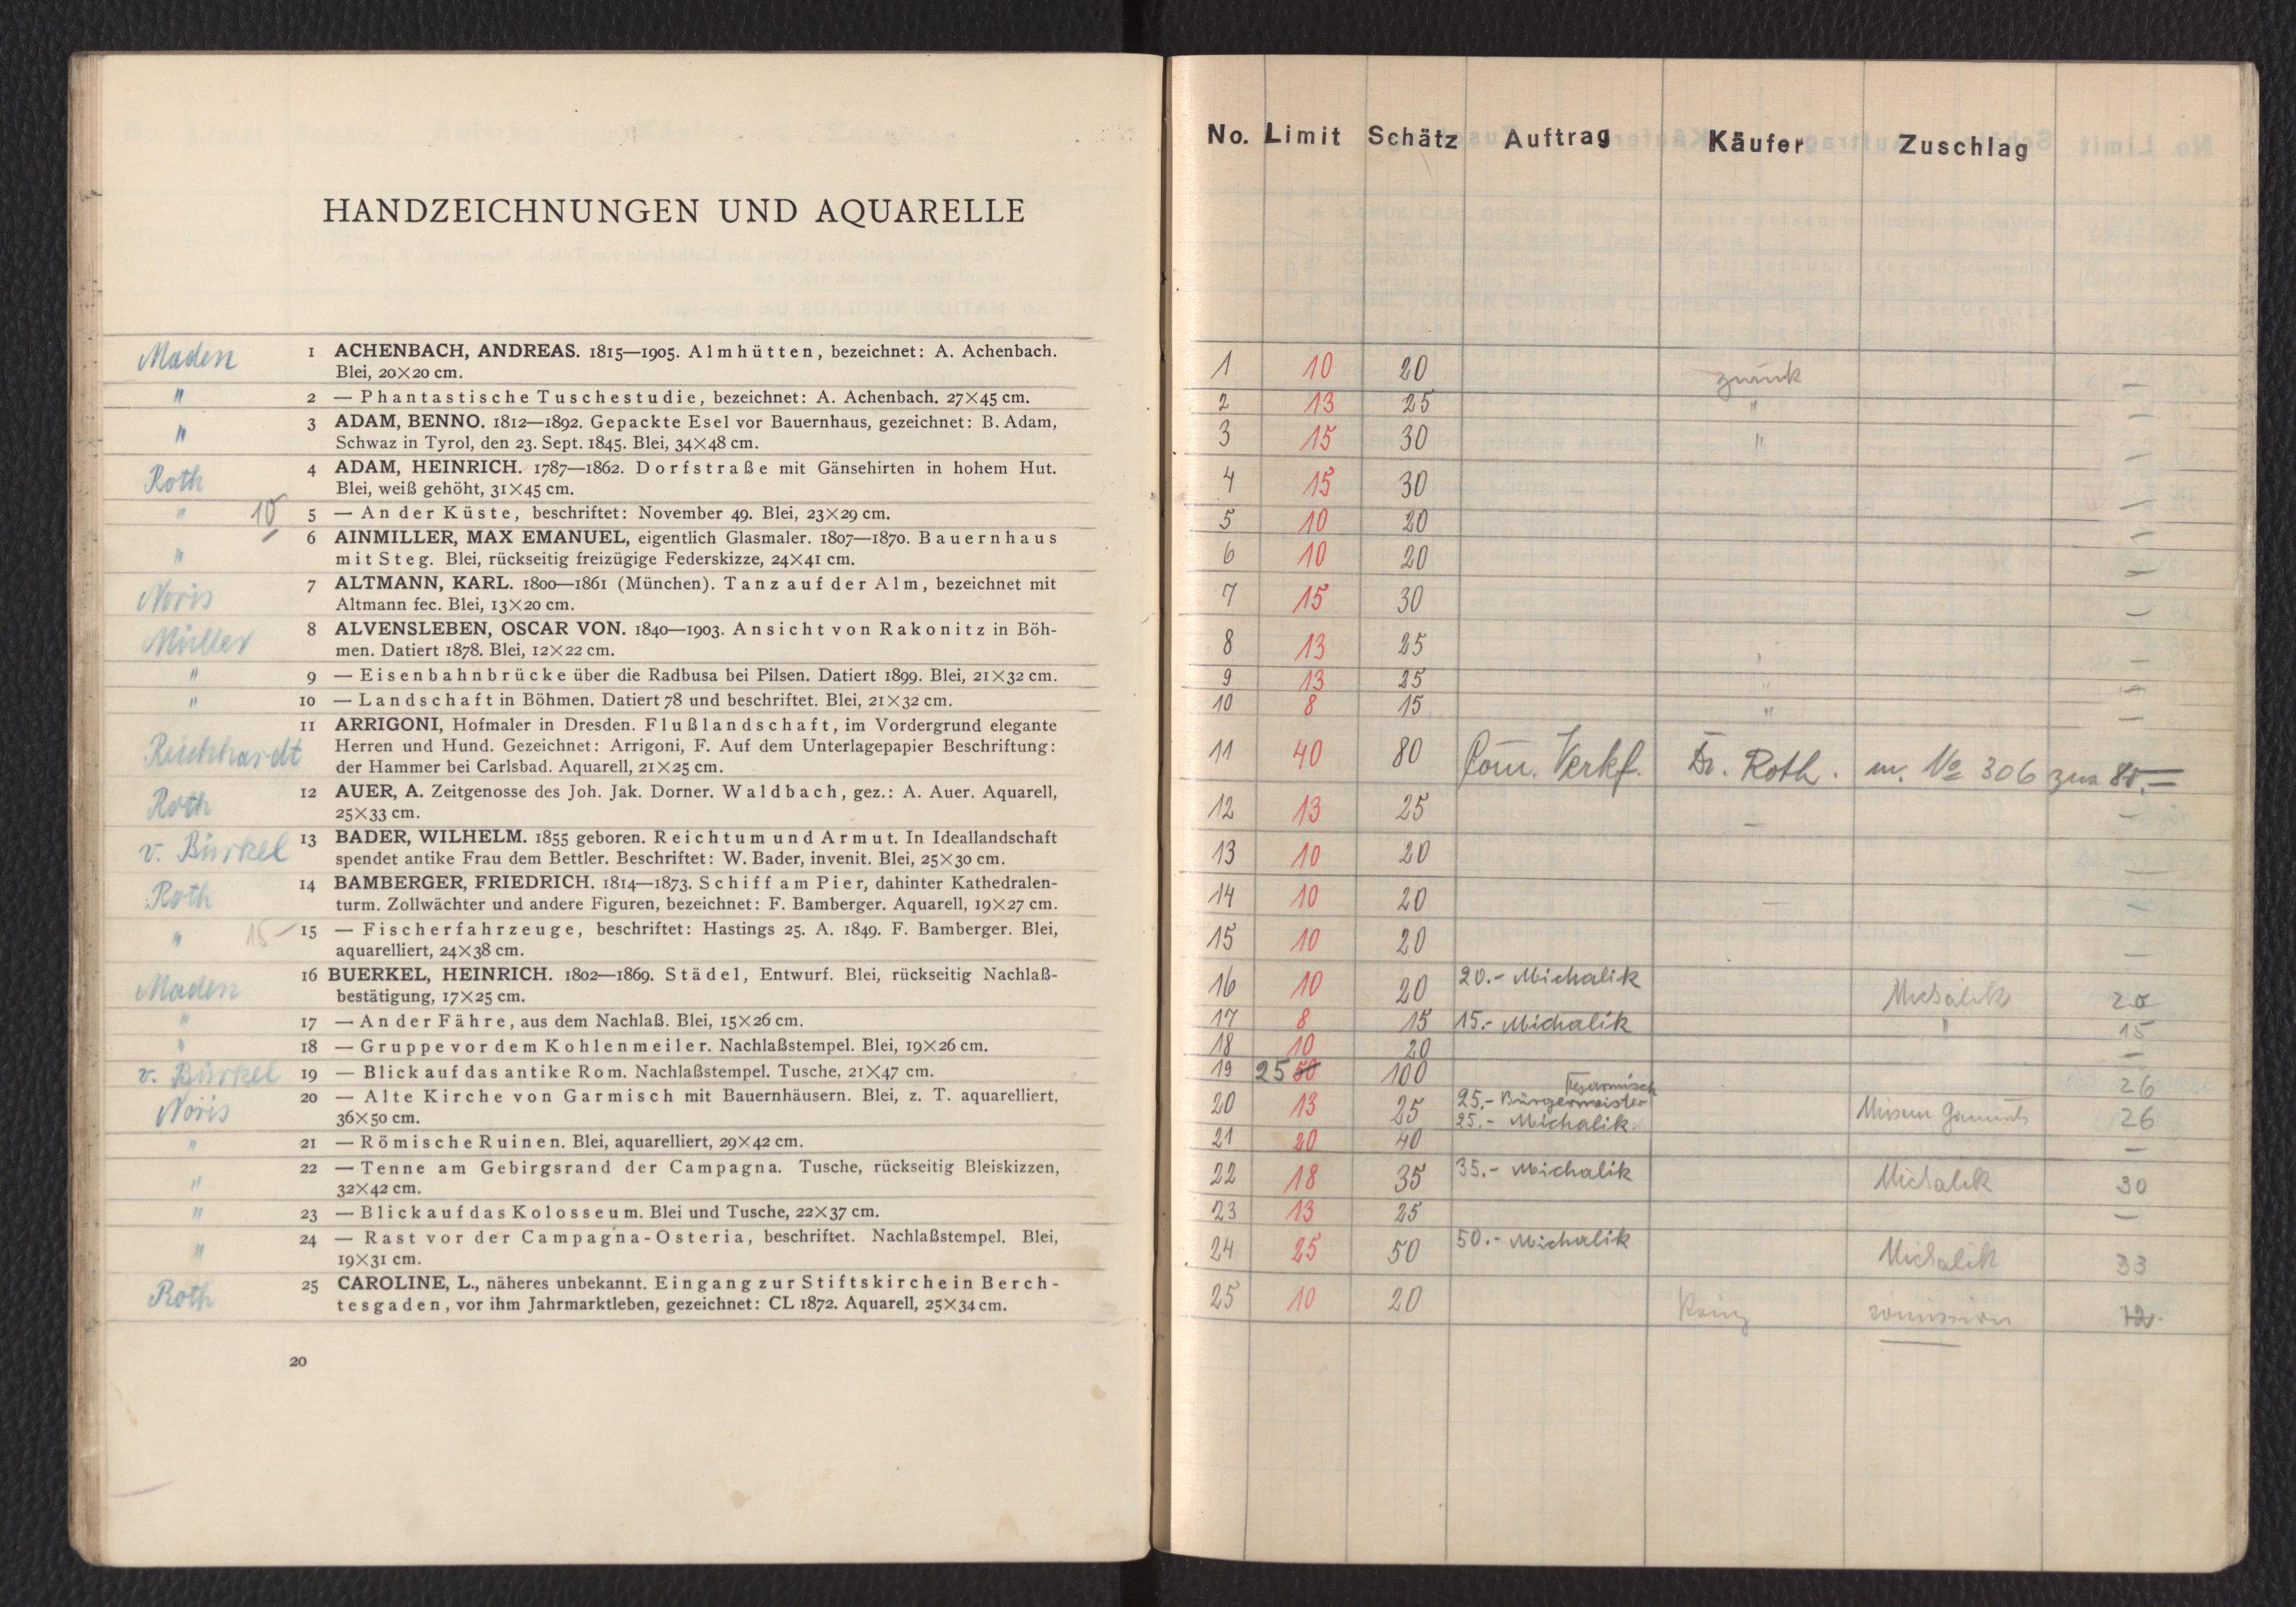 HANDZEICHNUNGEN UND AQUARELLE
Maden 1 ACHENBACH, ANDREAS. 1815—1905. Almhütten, bezeichnet: A. Achenbach.
Blei, 20×20 cm.
" 2 — Phantastische Tuschestudie, bezeichnet: A. Achenbach. 27×45 cm.
" 3 ADAM, BENNO. 1812—1892. Gepackte Esel vor Bauernhaus, gezeichnet: B. Adam,
Schwaz in Tyrol, den 23. Sept. 1845. Blei, 34×48 cm.
Roth 4 ADAM, HEINRICH. 1787—1862. Dorfstraße mit Gänsehirten in hohem Hut.
Blei, weiß gehöht, 31×45 cm.
" 10 5 — An der Küste, beschriftet: November 49. Blei, 23×29 cm.
" 6 AINMILLER, MAX EMANUEL, eigentlich Glasmaler. 1807—1870. Bauernhaus
mit Steg. Blei, rückseitig freizügige Federskizze, 24×41 cm.
Noris 7 ALTMANN, KARL. 1800—1861 (München). Tanz auf der Alm, bezeichnet mit
Altmann fec. Blei, 13×20 cm.
Müller 8 ALVENSLEBEN, OSCAR VON. 1840—1903. Ansicht von Rakonitz in Böh-
men. Datiert 1878. Blei, 12×22 cm.
" 9 — Eisenbahnbrücke über die Radbusa bei Pilsen. Datiert 1899. Blei, 21×32 cm.
" 10 — Landschaft in Böhmen. Datiert 78 und beschriftet. Blei, 21×32 cm.
11 ARRIGONI, Hofmaler in Dresden. Flußlandschaft, im Vordergrund elegante
Reichhardt Herren und Hund. Gezeichnet: Arrigoni, F. Auf dem Unterlagepapier Beschriftung:
der Hammer bei Carlsbad. Aquarell, 21×25 cm.
Roth 12 AUER, A. Zeitgenosse des Joh. Jak. Dorner. Waldbach, gez.: A. Auer. Aquarell,
25×33 cm.
v. Bürkel 13 BADER, WILHELM. 1855 geboren. Reichtum und Armut. In Ideallandschaft
spendet antike Frau dem Bettler. Beschriftet: W. Bader, invenit. Blei, 25×30 cm.
Roth 14 BAMBERGER, FRIEDRICH. 1814—1873. Schiff am Pier, dahinter Kathedralen-
turm. Zollwächter und andere Figuren, bezeichnet: F. Bamberger. Aquarell, 19×27 cm.
" 15 — 15 — Fischerfahrzeuge, beschriftet: Hastings 25. A. 1849. F. Bamberger. Blei,
aquarelliert, 24×38 cm.
Maden 16 BUERKEL, HEINRICH. 1802—1869. Städel, Entwurf. Blei, rückseitig Nachlaß-
bestätigung, 17×25 cm.
" 17 — An der Fähre, aus dem Nachlaß. Blei, 15×26 cm.
" 18 — Gruppe vor dem Kohlenmeiler. Nachlaßstempel. Blei, 19×26 cm.
v. Bürkel 19 — Blick auf das antike Rom. Nachlaßstempel. Tusche, 21×47 cm.
Noris 20 — Alte Kirche von Garmisch mit Bauernhäusern. Blei, z. T. aquarelliert,
36×50 cm.
" 21 — Römische Ruinen. Blei, aquarelliert, 29×42 cm.
" 22 — Tenne am Gebirgsrand der Campagna. Tusche, rückseitig Bleiskizzen,
32×42 cm.
" 23 — Blick auf das Kolosseum. Blei und Tusche, 22×37 cm.
" 24 — Rast vor der Campagna-Osteria, beschriftet. Nachlaßstempel. Blei,
19×31 cm.
Roth 25 CAROLINE, L., näheres unbekannt. Eingang zur Stiftskirche in Berch-
tesgaden, vor ihm Jahrmarktleben, gezeichnet: CL 1872. Aquarell, 25×34 cm.
20
No. Limit Schätz Auftrag Käufer Zuschlag
1 10 20 zurück —
2 13 25 " —
3 15 30 " —
4 15 30 —
5 10 20 —
6 10 20 —
7 15 30 —
8 13 25 " —
9 13 25 " —
10 8 15 " —
11 40 80 Com. Verkf. Dr. Roth. m. No 306 zus 85.—
12 13 25 — —
13 10 20 —
14 10 20 — —
15 10 20 —
16 10 20 20.- Michalik Michalik 20
17 8 15 15.- Michalik " 15
18 10 20 —
19 25 50 100 26
Garmisch
20 13 25 25.- Bürgermeister Museum Garmisch 26
25.- Michalik
21 20 40 —
22 18 35 35.- Michalik Michalik 30
23 13 25 —
24 25 50 50.- Michalik Michalik 33
25 10 20 12.